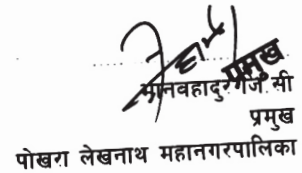 प्रमुख
मानवहादुर जि.सी
प्रमुख
पोखरा लेखनाथ महानगरपालिका